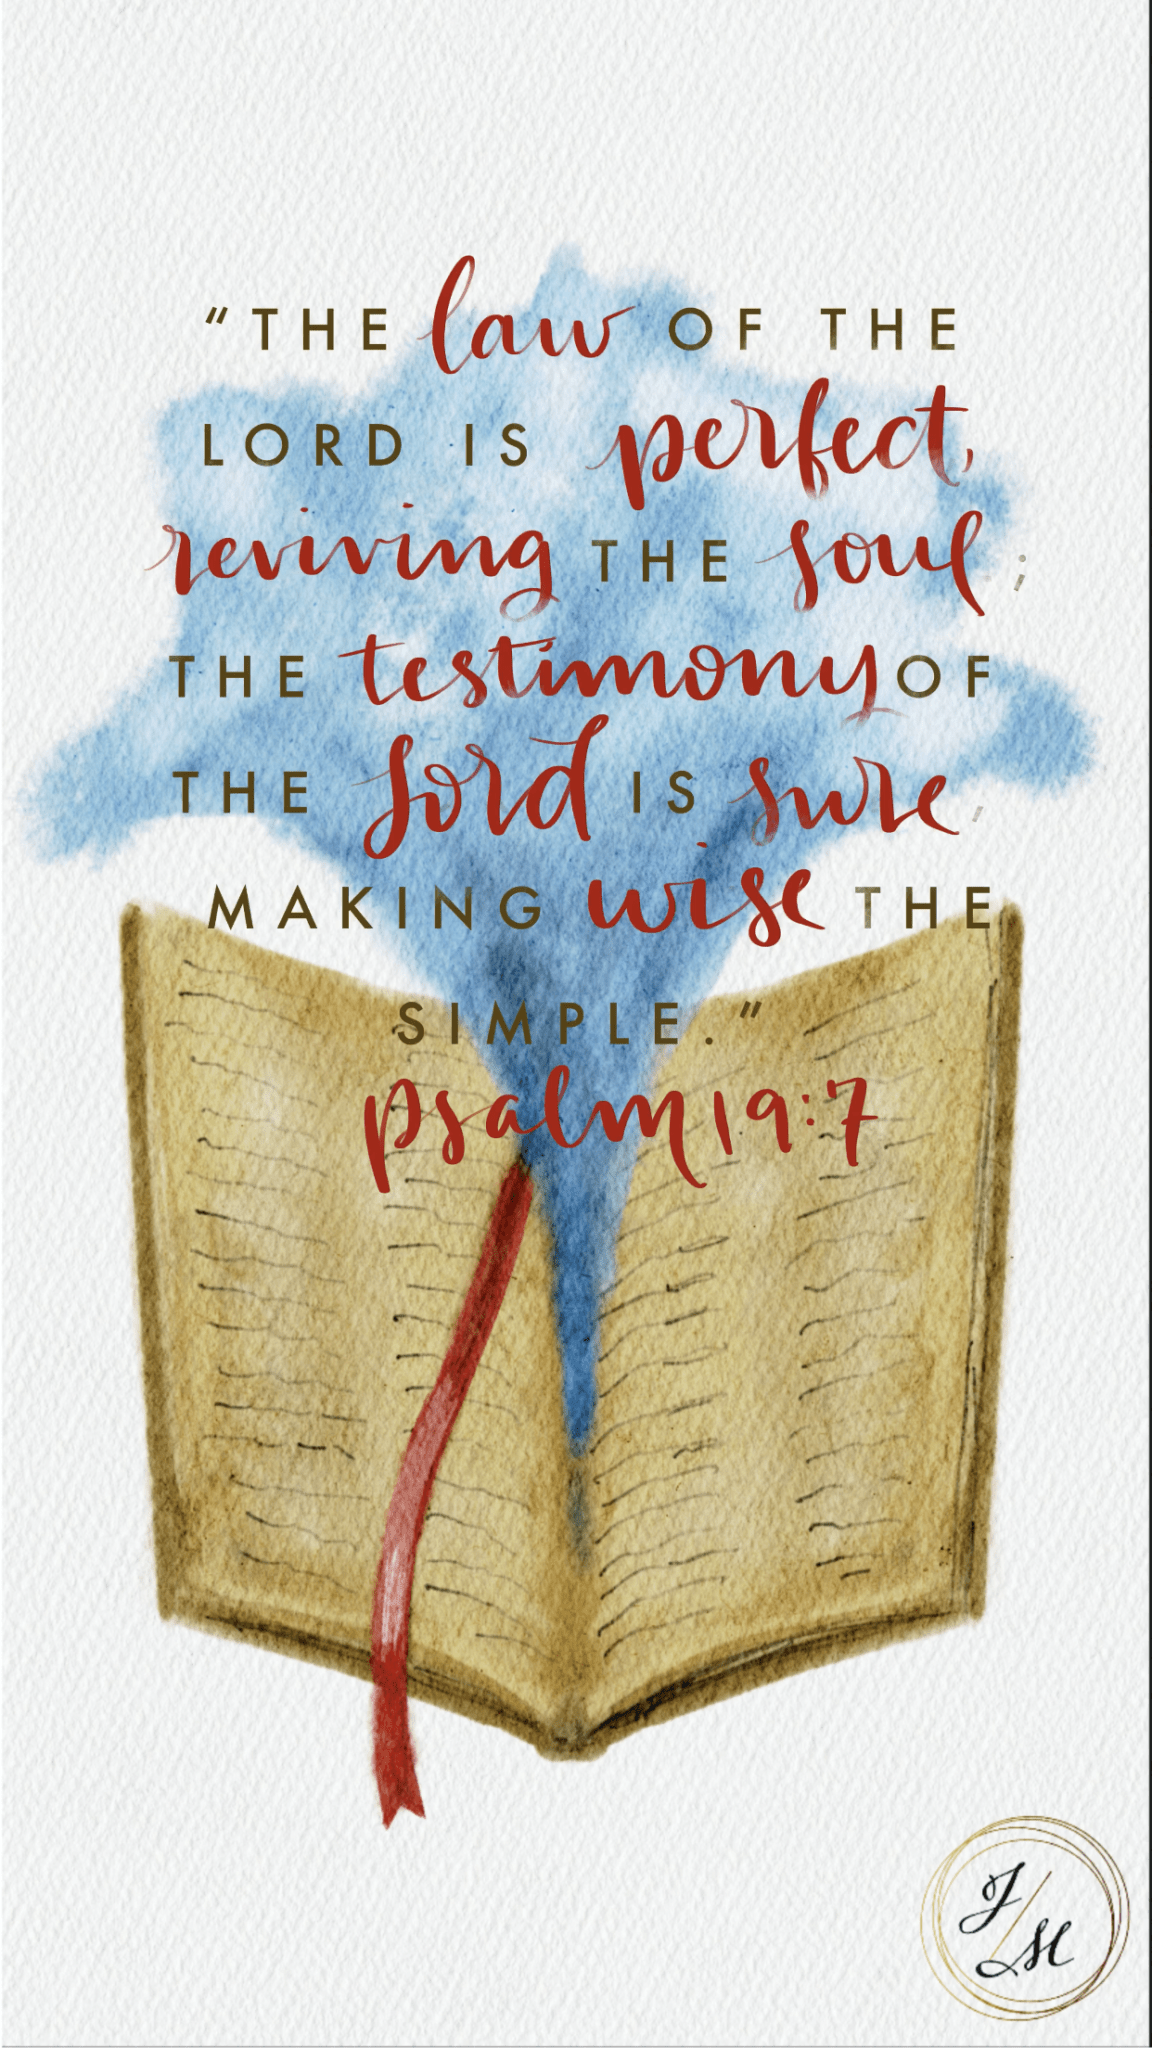 “THE law OF THE
LORD IS perfect,
reviving THE soul;
THE testimony OF
THE Lord IS sure,
MAKING wise THE
SIMPLE.”
psalm 19:7
J/M